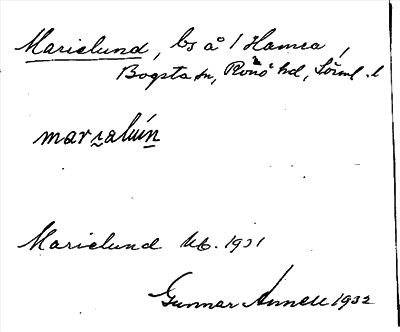 Marielund, ls å 1 Hamra,
Bogsta sn, Rönö hd, Sörml. l
marzaluín
Marielund Uc. 1931
Gunnar Annell 1932